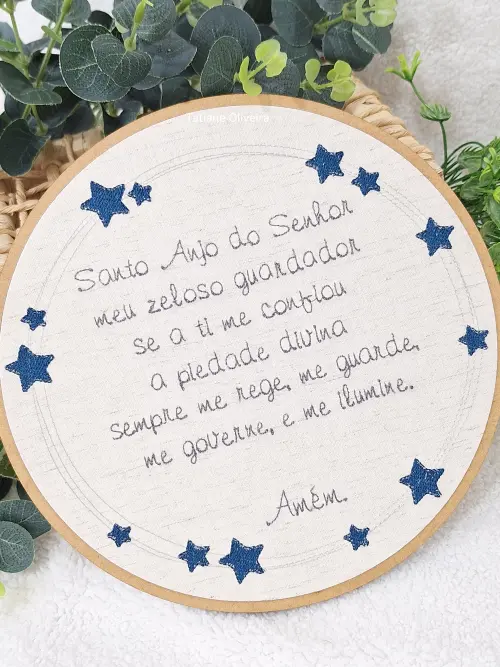 Tatiane Oliveira
Santo Anjo do Senhor
meu zeloso guardador
se a ti me confiou
a piedade divina
sempre me rege, me guarde,
me governe, e me ilumine.
Amém.